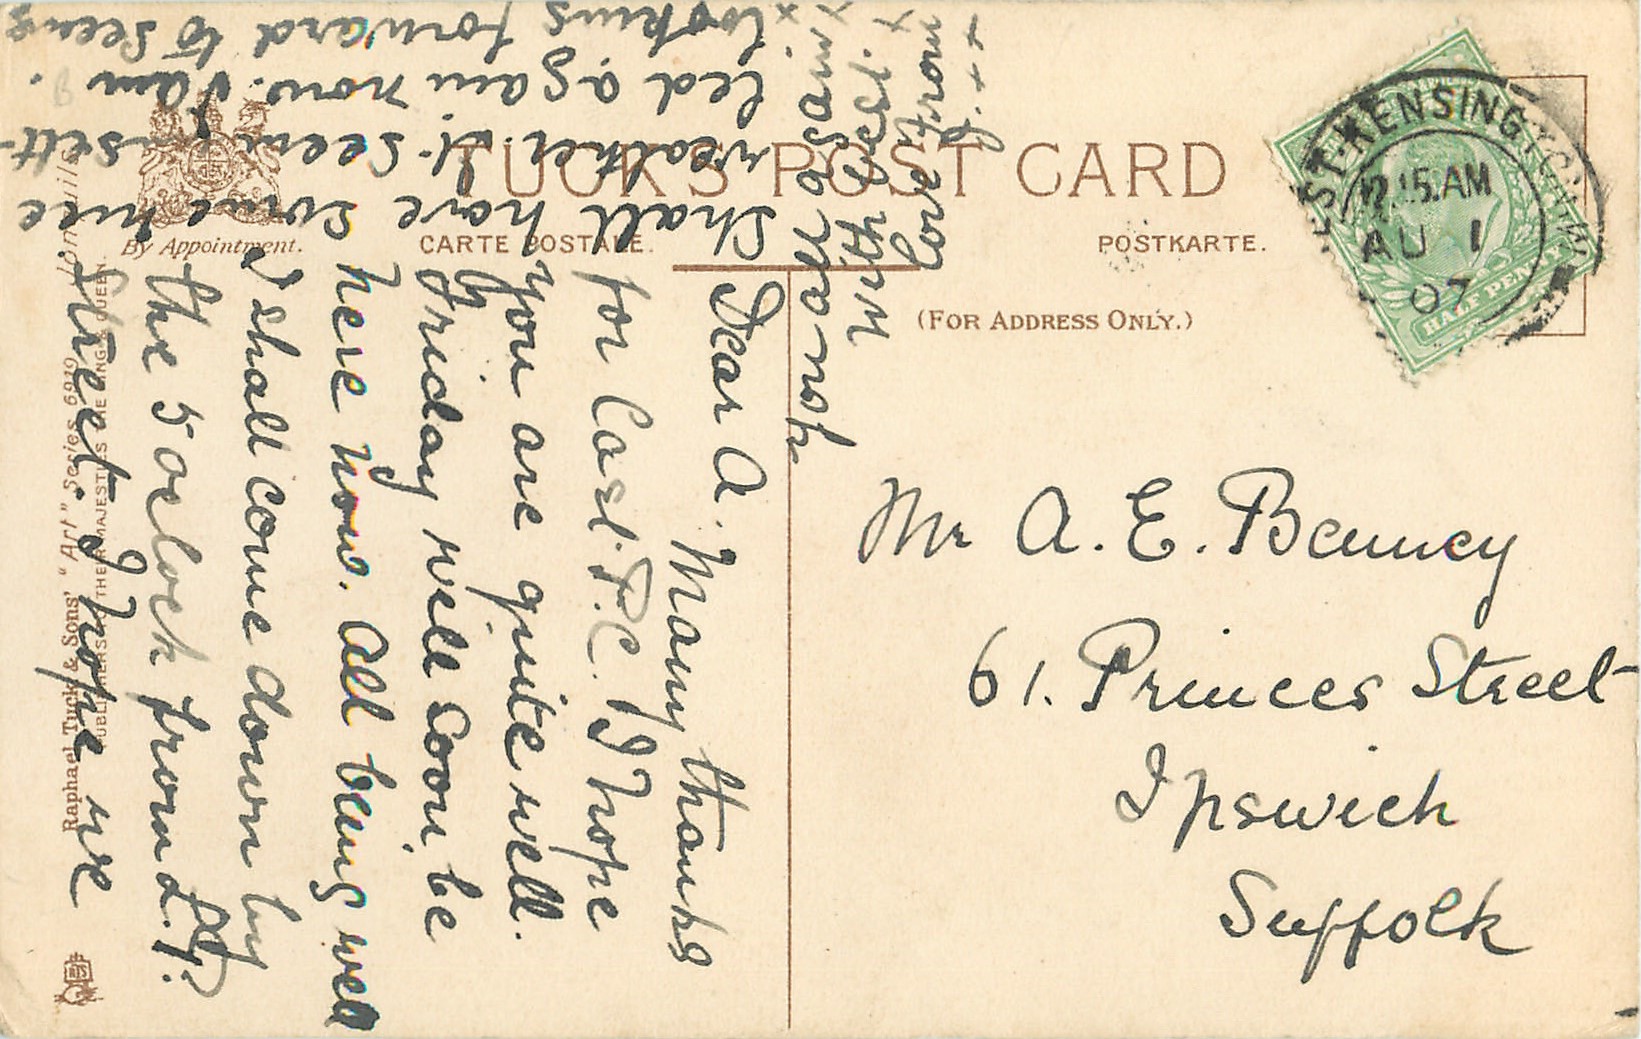 TUCK'S POST CARD
By Appointment.
CARTE POSTALE.
POSTKARTE.
(FOR ADDRESS ONLY.)
W. KENSINGTON. W
12.15.AM
AU 1
07
HALF PENNY
Mr A. E. Benney
61. Princes Street
Ipswich
Suffolk
Dear A. Many thanks
for Card. P.C. I hope
you are quite well.
Friday will soon be
here now. All being well
I shall come down by
the 5 oclock from L.
Street. I hope we
shall have some nice
weather. It seems sett-
led again now. I am
looking forward to seeing
you so no more
with best
Love from
J. + +
x x x
Raphael Tuck & Sons' "Art" Series 6919
PUBLISHERS TO THEIR MAJESTIES THE KING & QUEEN.